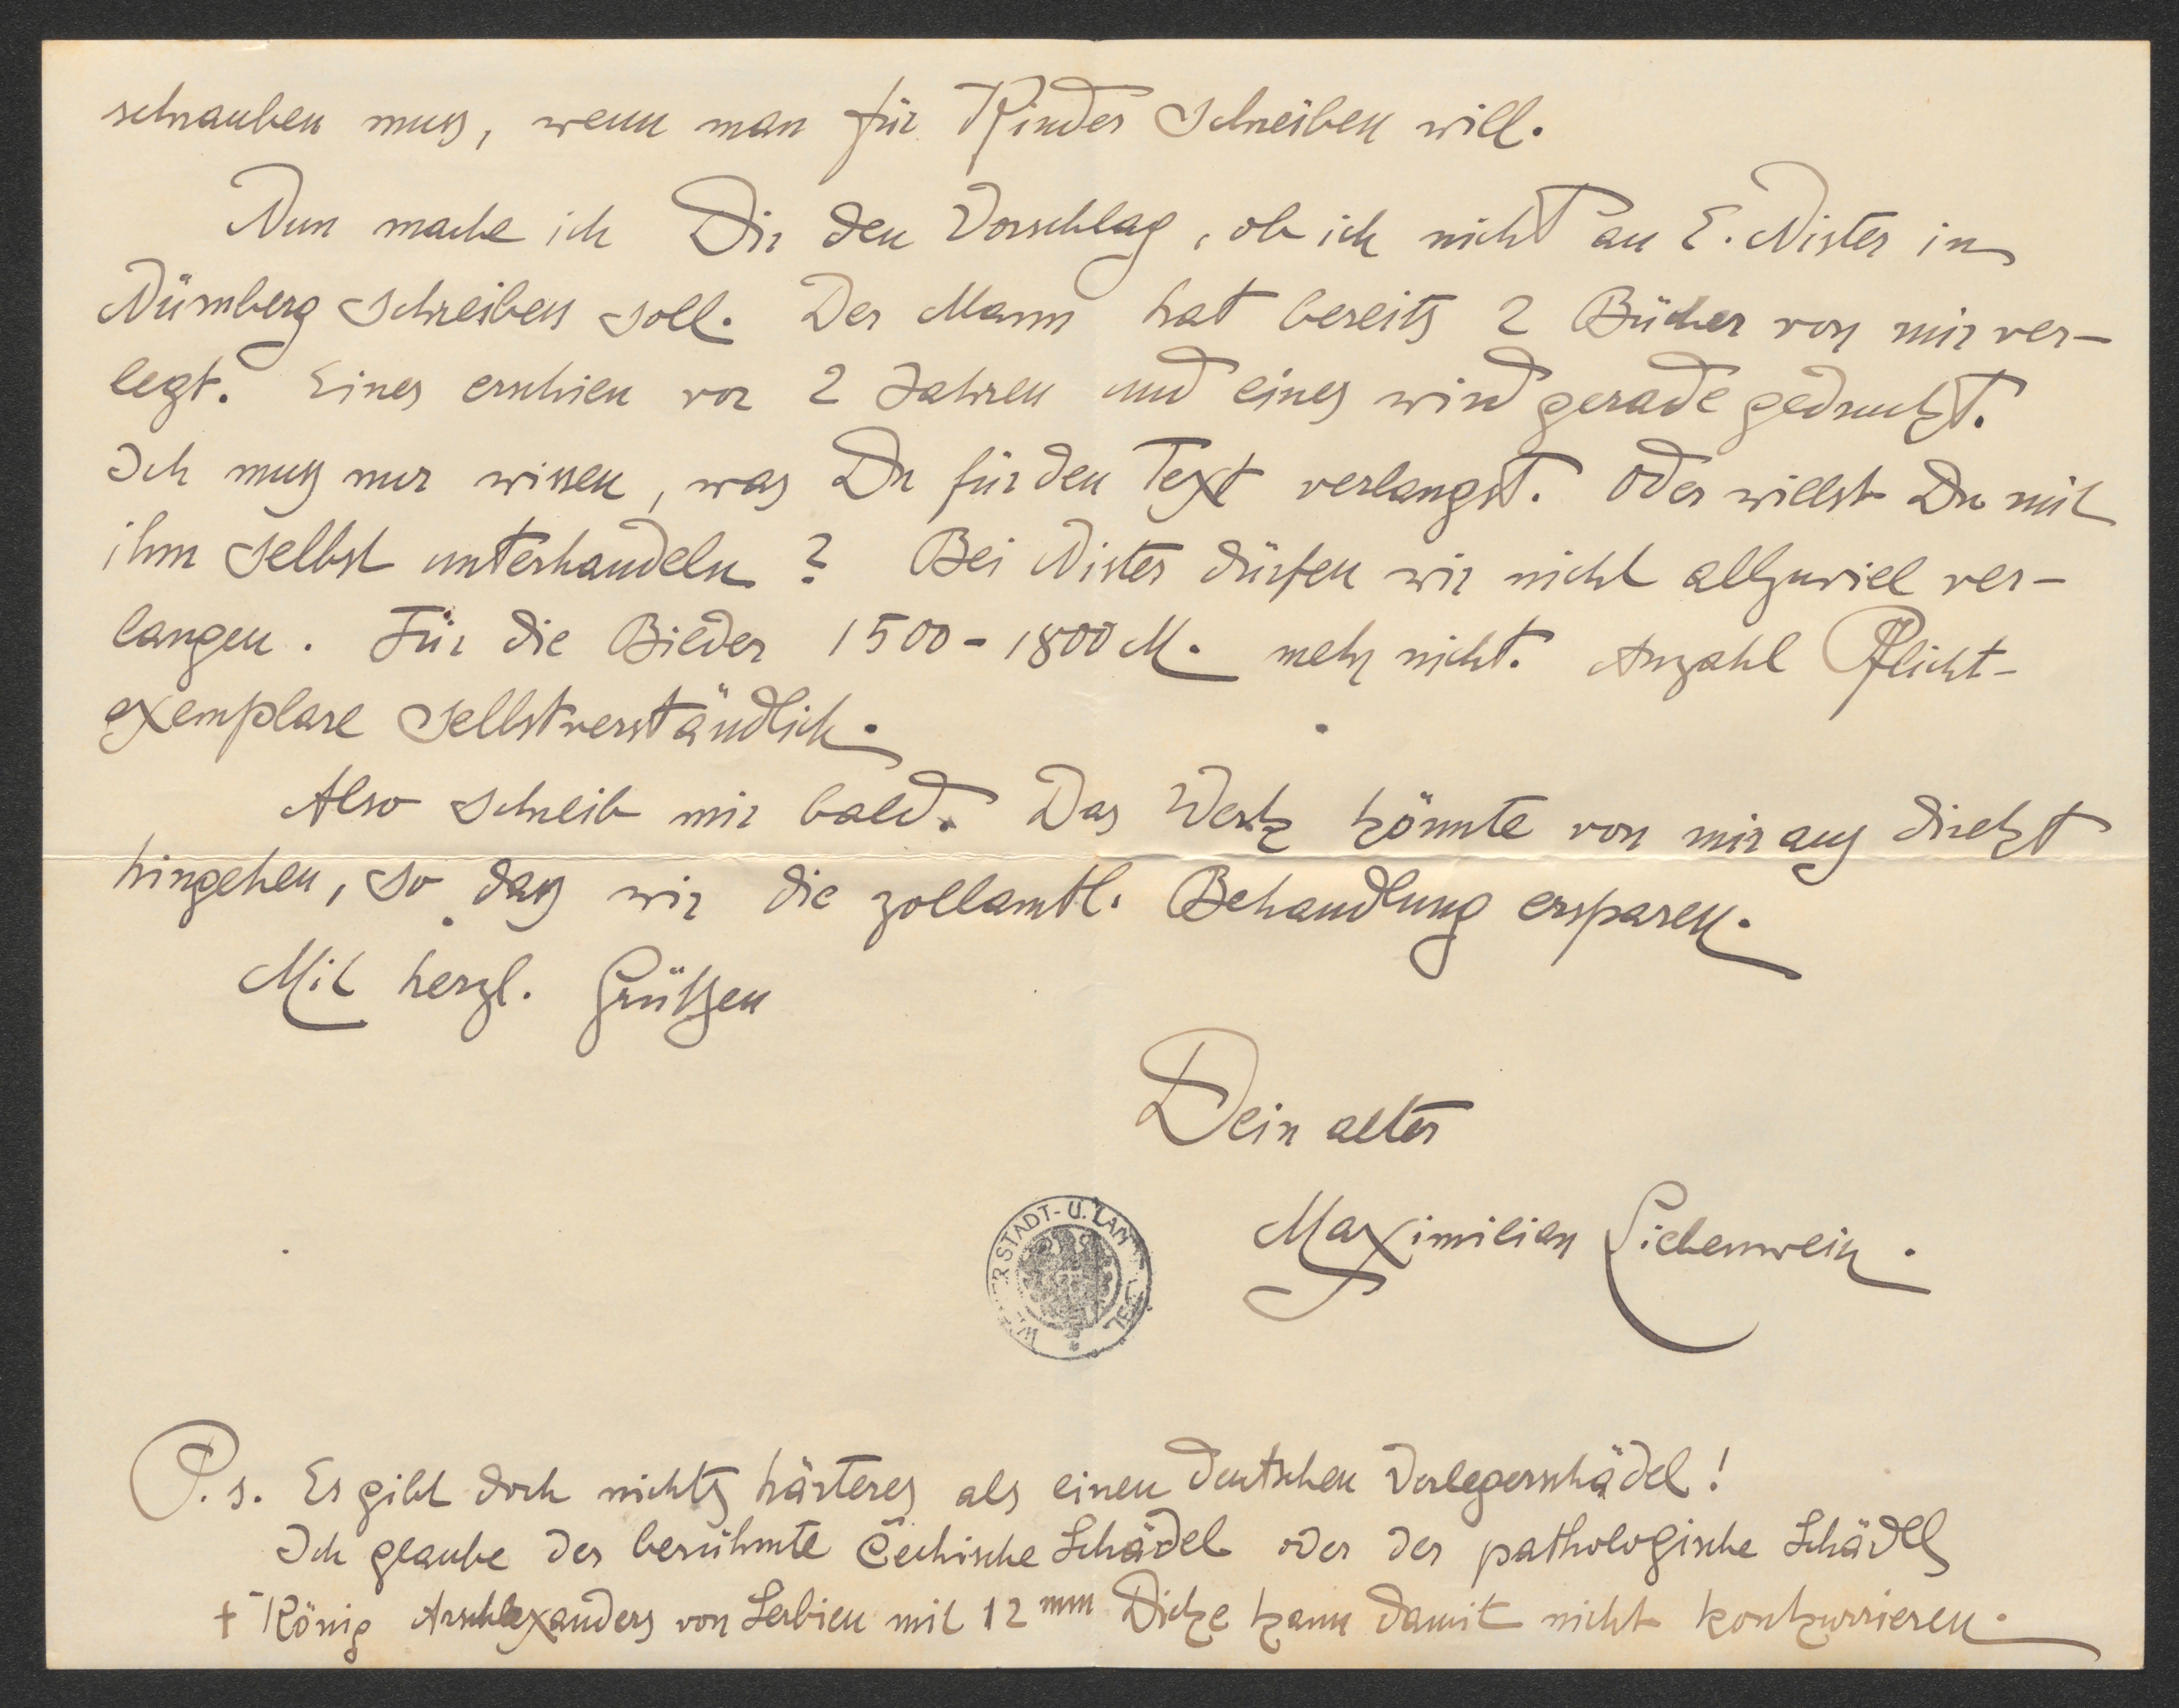 schrauben muß, wenn man für Kinder schreiben will.
Nun mache ich Dir den Vorschlag, ob ich nicht an E. Nister in
Nürnberg schreiben soll. Der Mann hat bereits 2 Bücher von mir ver-
legt. Eines erschien vor 2 Jahren und eines wird gerade gedruckt.
Ich muß nur wissen, was Du für den Text verlangst. Oder willst Du mit
ihm selbst unterhandeln? Bei Nister dürfen wir nicht allzuviel ver-
langen. Für die Bilder 1500-1800 M. mehr nicht. Anzahl Pflicht-
exemplare selbstverständlich.
Also schreib mir bald. Das Werk könnte von mir aus direkt
hingehen, so daß wir die zollamtl. Behandlung ersparen.
Mit herzl. Grüßen
Dein alter
Maximilian Liebenwein.
STADT- U. LAN
P.s. Es gibt doch nichts härteres als einen deutschen Verlegerschädel!
Ich glaube der berühmte čechische Schädel oder der pathologische Schädel
† König Arschlexanders von Serbien mit 12 mm Dicke kann damit nicht konkurrieren.